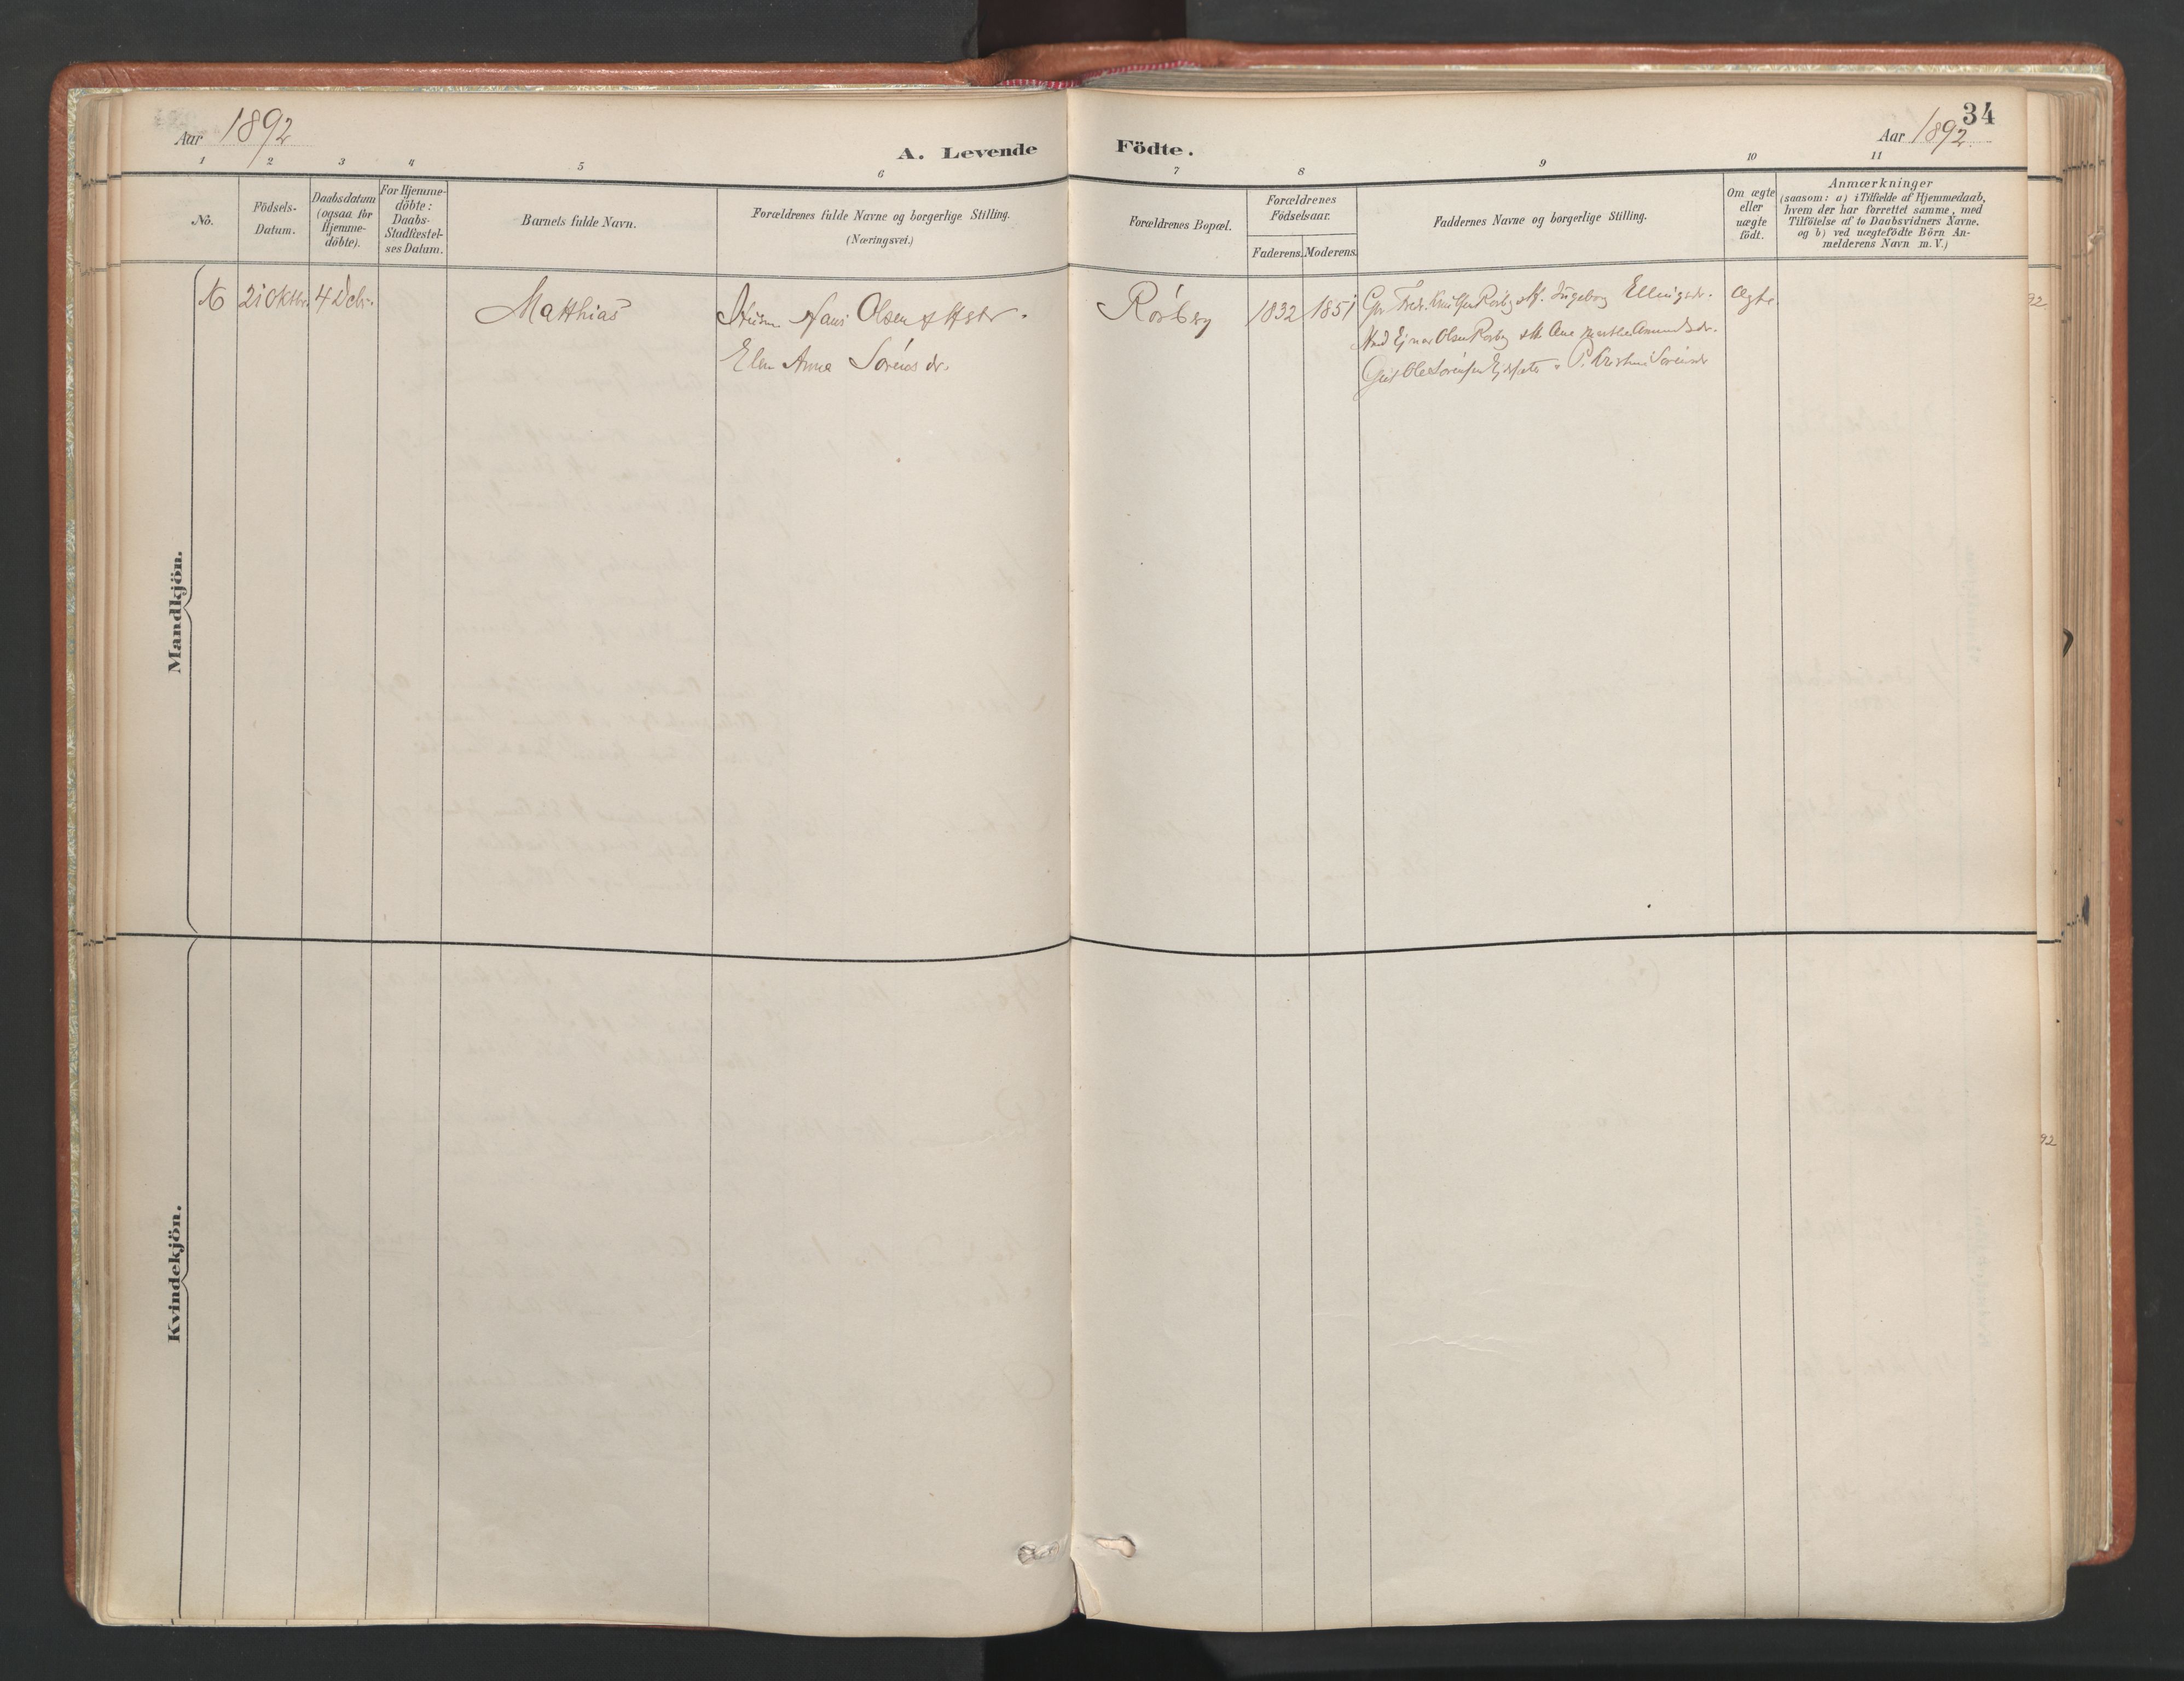 34
Aar 1892
A. Levende Födte.
Aar 1892.
1 2 3 4 5 6 7 8 9 10 11
No.
Födsels-
Datum.
Daabsdatum
(ogsaa for
Hjemme-
döbte).
For Hjemme-
döbte:
Daabs-
Stadfæstel-
ses Datum.
Barnets fulde Navn.
Forældrenes fulde Navne og borgerlige Stilling.
(Næringsvei.)
Forældrenes Bopæl.
Forældrenes
Födselsaar.
Faderens. Moderens.
Faddernes Navne og borgerlige Stilling.
Om ægte
eller
uægte
födt.
Anmærkninger
(saasom: a) i Tilfælde af Hjemmedaab,
hvem der har forrettet samme, med
Tilföielse af to Daabsvidners Navne.
og b) ved uægtefödte Börn An-
melderens Navn m. V.)
Mandkjön.
21 Oktbr. 4 Debr. Matthias Hans Olsen & Hstr. Rörberg 1832 1851 Ingeborg Ellingsdr. Ægte.
Elen Anna Sörensdr.
Ejnar Olsen Ane Marthe Amundsdr.
Ole Sörensen P. Kristine Sörensdr
Kvindekjön.
92
92